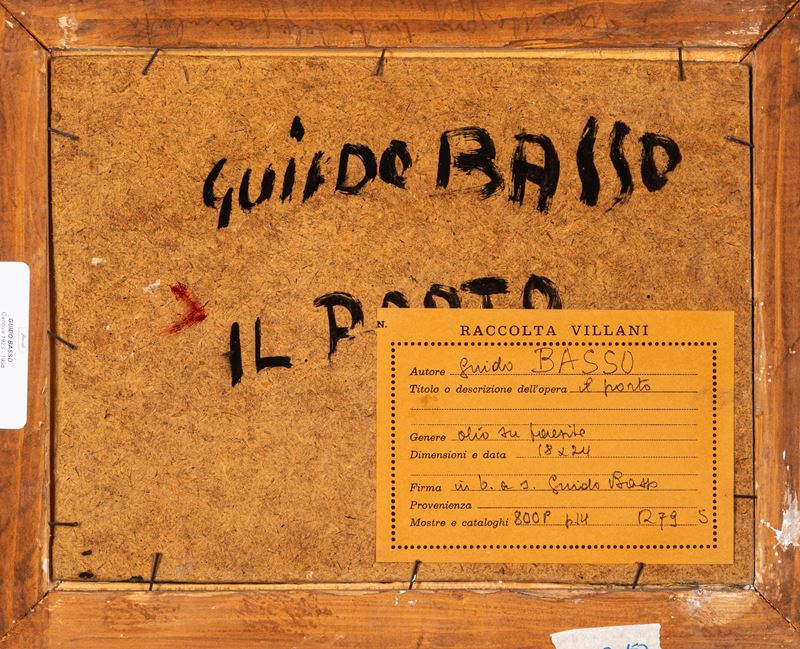 GUIDO BASSO
IL PORTO
N.
RACCOLTA VILLANI
Autore Guido BASSO
Titolo o descrizione dell'opera il porto
Genere olio su faesite
Dimensioni e data 18x24
Firma in b. a s. Guido Basso
Provenienza
Mostre e cataloghi 800P p14 R79 S
GUIDO BASSO